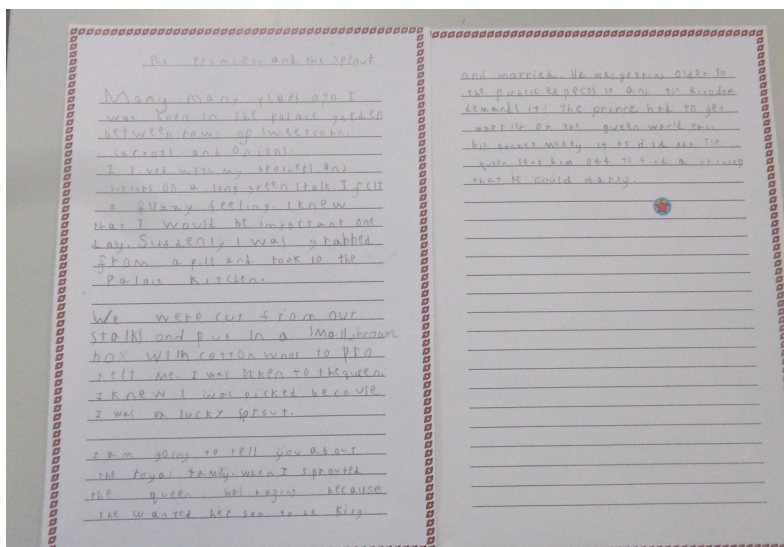 The Princess and the Sprout
Many many years ago I
was born in the palace garden
between rows of sweetcorn,
carrots and onions.
I lived with my brothers and
sisters on a long green stalk I felt
a fuzzy feeling. I knew
that I would be important one
day. Suddenly I was grabbed
from a pile and took to the
Palace kitchen.
We were cut from our
stalks and put in a small, brown
box with cotton wool to pro
tect me. I was taken to the queen.
I knew I was picked because
I was a lucky sprout.
I am going to tell you about
the royal family. when I sprouted
the queen was because
she wanted her son to be King
and married. He was getting older so
the public expects it and the kingdom
demands it! The prince had to get
married or the queen would
his pocket money if he did not. The
queen sent him off to find a princess
that he could marry.